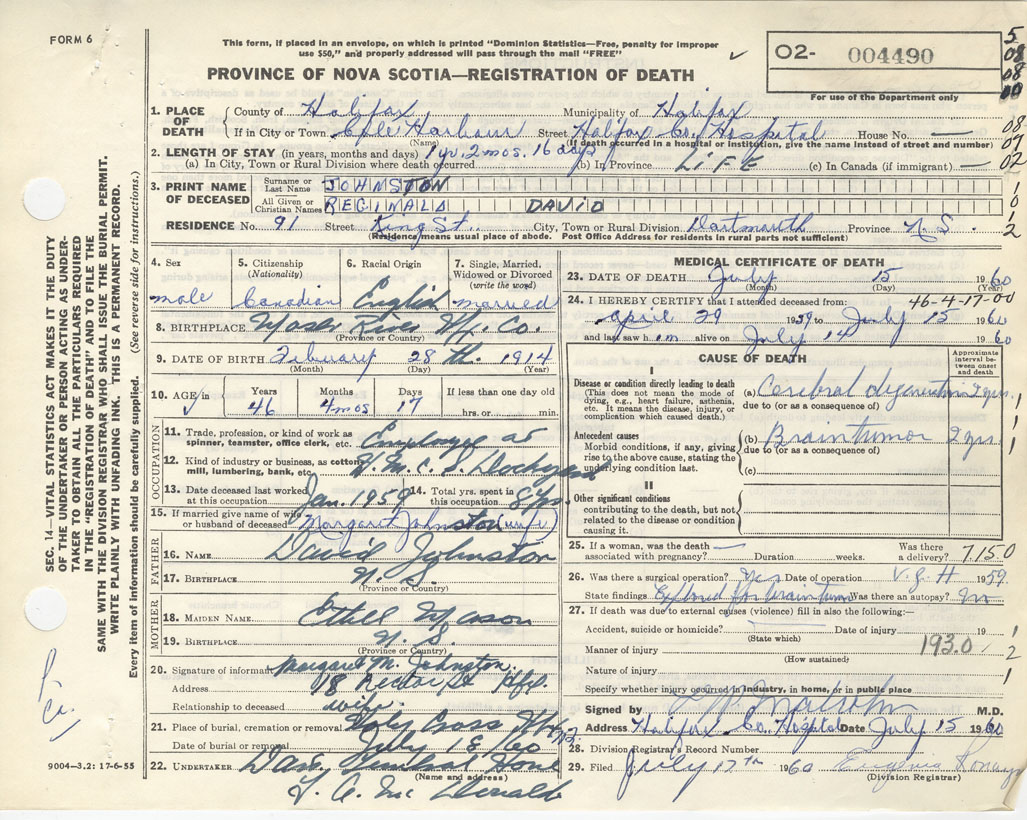 FORM 6
This form, if placed in an envelope, on which is printed "Dominion Statistics—Free, penalty for improper
use $50," and properly addressed will pass through the mail "FREE"
PROVINCE OF NOVA SCOTIA—REGISTRATION OF DEATH
O2- 004490
For use of the Department only
5
08
08
00
08
09
02
1
0
1
2
1. PLACE OF DEATH
County of Halifax Municipality of Halifax
If in City or Town Cole Harbour Street Halifax Co. Hospital House No. —
(Name) (If death occurred in a hospital or institution, give the name instead of street and number)
2. LENGTH OF STAY (in years, months and days) 1 yr. 2 mos. 16 days
(a) In City, Town or Rural Division where death occurred (b) in Province LiFE (c) In Canada (if immigrant) —
3. PRINT NAME OF DECEASED
Surname or Last Name JOHNSTON
All Given or Christian Names REGINALD DAVID
RESIDENCE No. 91 Street King St. City, Town or Rural Division Dartmouth Province N.S.
(Residence means usual place of abode. Post Office Address for residents in rural parts not sufficient)
4. Sex 5. Citizenship (Nationality) 6. Racial Origin 7. Single, Married, Widowed or Divorced (write the word)
male Canadian English married
8. BIRTHPLACE Moser River Hfx. Co.
(Province or Country)
9. DATE OF BIRTH February 28 th. 1914
(Month) (Day) (Year)
10. AGE in Years Months Days If less than one day old
46 4 mos 17 hrs. or min.
OCCUPATION
11. Trade, profession, or kind of work as spinner, teamster, office clerk, etc. Employee at
12. Kind of industry or business, as cotton mill, lumbering, bank, etc. H.M.C.S. Dockyard
13. Date deceased last worked at this occupation Jan. 1959 14. Total yrs. spent in this occupation 8 yrs.
15. If married give name of wife or husband of deceased Margaret Johnston (wife)
FATHER
16. NAME David Johnston
17. BIRTHPLACE N.S.
(Province or Country)
MOTHER
18. MAIDEN NAME Ethel Mason
19. BIRTHPLACE N.S.
(Province or Country)
20. Signature of informant Margaret M. Johnston
Address 18 Rector St Hfx.
Relationship to deceased wife.
21. Place of burial, cremation or removal Holy Cross Hfx
Date of burial or removal July 18/60
22. UNDERTAKER Funeral Home
(Name and address)
MEDICAL CERTIFICATE OF DEATH
23. DATE OF DEATH July 15 1960
(Month) (Day) (Year)
24. I HEREBY CERTIFY that I attended deceased from: 46-4-17-00
April 29 1959 to July 15 1960
and last saw him alive on July 14 1960
CAUSE OF DEATH
Approximate interval between onset and death
I
Disease or condition directly leading to death
(This does not mean the mode of dying, e.g., heart failure, asthenia, etc. It means the disease, injury, or complication which caused death.)
(a) Cerebral degeneration 2 yrs.
due to (or as a consequence of)
Antecedent causes
Morbid conditions, if any, giving rise to the above cause, stating the underlying condition last.
(b) Brain tumor 2 yrs.
due to (or as a consequence of)
(c)
II
Other significant conditions
contributing to the death, but not related to the disease or condition causing it.
25. If a woman, was the death associated with pregnancy? — Duration weeks. Was there a delivery? 715.0
26. Was there a surgical operation? Yes Date of operation V.G.H 1959
State findings Explored for brain tumor Was there an autopsy?
27. If death was due to external causes (violence) fill in also the following:—
Accident, suicide or homicide? Date of injury 19
(State which)
Manner of injury 193.0
(How sustained)
Nature of injury
Specify whether injury occurred in industry, in home, or in public place
Signed by Malcolm M.D.
Address Halifax Co. Hospital Date July 15 1960
28. Division Registrar's Record Number
29. Filed July 17th 1960 Eugenia
(Division Registrar)
SEC. 14—VITAL STATISTICS ACT MAKES IT THE DUTY
OF THE UNDERTAKER OR PERSON ACTING AS UNDER-
TAKER TO OBTAIN ALL THE PARTICULARS REQUIRED
IN THE "REGISTRATION OF DEATH" AND TO FILE THE
SAME WITH THE DIVISION REGISTRAR WHO SHALL ISSUE THE BURIAL PERMIT.
WRITE PLAINLY WITH UNFADING INK. THIS IS A PERMANENT RECORD.
Every item of information should be carefully supplied. (See reverse side for instructions.)
9004—3.2: 17-6-55